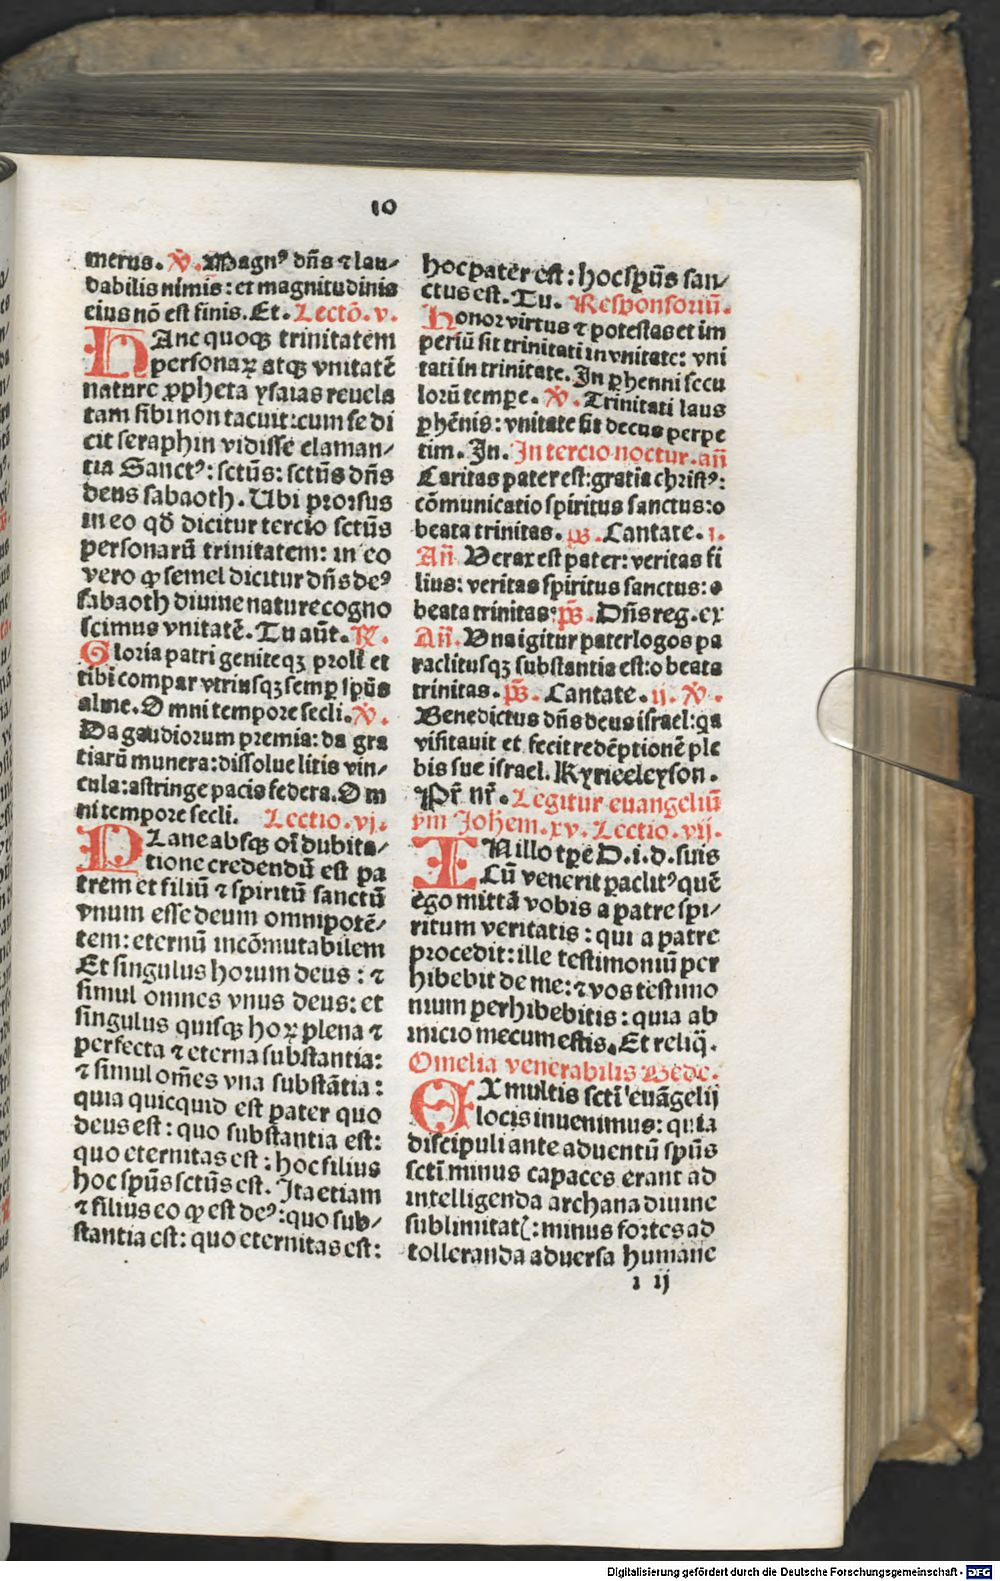 10
merus. ℣. Magnꝰ dn̄s ⁊ lau⸗
dabilis nimis: et magnitudinis
eius nō est finis. Et. Lectō. v.
HAnc quoqꝫ trinitatem
personaꝝ atqꝫ vnitatē
nature ꝓpheta ysaias reuela
tam sibi non tacuit: cum se di
cit seraphin vidisse claman⸗
tia Sanctꝰ: sctūs: sctūs dn̄s
deus sabaoth. Ubi prorsus
in eo qđ dicitur tercio sctūs
personarū trinitatem: in eo
vero ꝙ semel dicitur dn̄s deꝰ
sabaoth diuine nature cogno
scimus vnitatē. Tu aūt. ℟.
Gloria patri geniteqꝫ proli et
tibi compar vtriusqꝫ semꝑ spūs
alme. Omni tempore secli. ℣.
Da gaudiorum premia: da gra
tiarū munera: dissolue litis vin⸗
cula: astringe pacis federa. Om
ni tempore secli. Lectio. vj.
PLane absqꝫ oī dubita⸗
tione credendū est pa
trem et filiū ⁊ spiritū sanctū
vnum esse deum omnipotē⸗
tem: eternū incōmutabilem
Et singulus horum deus: ⁊
simul omnes vnus deus: et
singulus quisqꝫ hoꝝ plena ⁊
perfecta ⁊ eterna substantia:
⁊ simul om̄es vna substātia:
quia quicquid est pater quo
deus est: quo substantia est:
quo eternitas est: hoc filius
hoc spūs sctūs est. Ita etiam
⁊ filius eo ꝙ est deꝰ: quo sub⸗
stantia est: quo eternitas est:
hoc pater est: hoc spūs san⸗
ctus est. Tu. Responsoriū.
Honor virtus ⁊ potestas et im
periū sit trinitati in vnitate: vni
tati in trinitate. In ꝑhenni secu
lorū tempe. ℣. Trinitati laus
ꝑhēnis: vnitate sit decus perpe
tim. In. In tercio noctur. an̄
Caritas pater est: gratia christꝰ:
cōmunicatio spiritus sanctus: o
beata trinitas. ps̄. Cantate. i.
An̄ Verax est pater: veritas fi
lius: veritas spiritus sanctus: o
beata trinitas: ps̄. Dn̄s reg. ex
An̄. Vna igitur pater logos pa
raclitusqꝫ substantia est: o beata
trinitas. ps̄. Cantate. ij. ℣.
Benedictus dn̄s deus israel: qa
visitauit et fecit redēptionē ple
bis sue israel. Kyrieeleyson.
Pr̄ nr̄. Legitur euangeliū
ẜm Johem. xv. Lectio. vij.
IN illo tp̄e D. i. d. suis
Cū venerit ꝑaclitꝰ quē
ego mittā vobis a patre spi⸗
ritum veritatis: qui a patre
procedit: ille testimoniū per
hibebit de me: ⁊ vos testimo
nium perhibebitis: quia ab
inicio mecum estis. Et reliq̄.
Omelia venerabilis Bede.
EX multis sctī euāgelij
locis inuenimus: quia
discipuli ante aduentū spūs
sctī minus capaces erant ad
intelligenda archana diuine
sublimitatꝭ: minus fortes ad
tolleranda aduersa humane
i ij
Digitalisierung gefördert durch die Deutsche Forschungsgemeinschaft - DFG